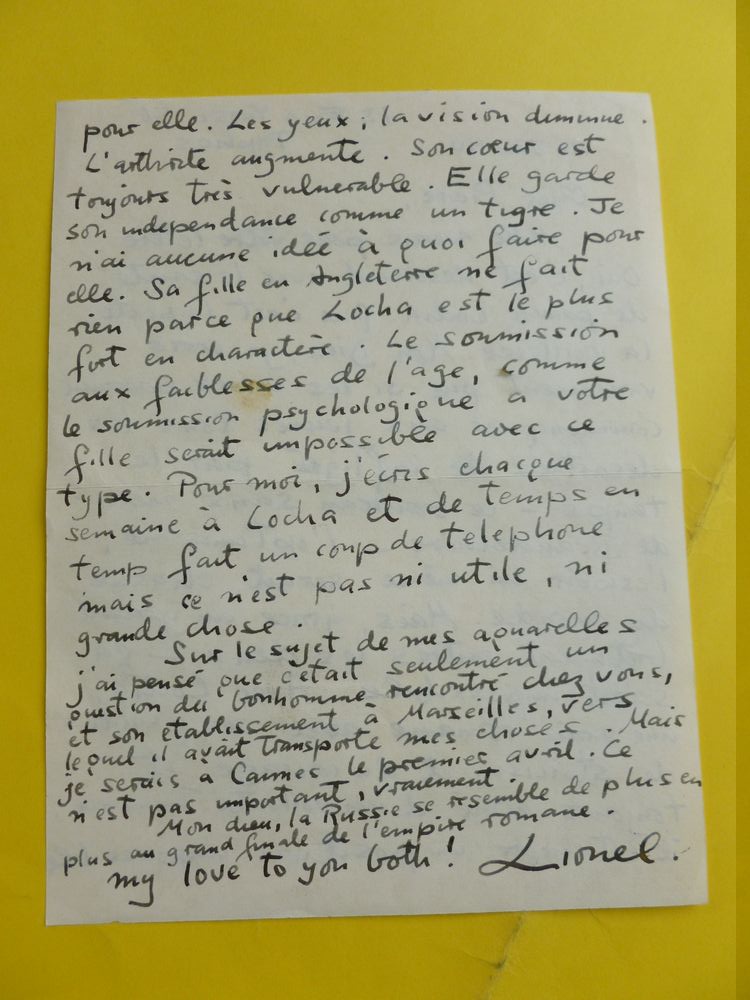 pour elle. Les yeux; la vision diminue.
L'arthrite augmente. Son cœur est
toujours très vulnerable. Elle garde
son independance comme un tigre. Je
n'ai aucune idée à quoi faire pour
elle. Sa fille en Angleterre ne fait
rien parce que Locha est le plus
fort en charactere. Le soumission
aux faiblesses de l'age, comme
le soumission psychologique a votre
fille serait impossible avec ce
type. Pour moi, j'écris chacque
semaine à Locha et de temps en
temp fait un coup de telephone
mais ce n'est pas ni utile, ni
grande chose.
Sur le sujet de mes aquarelles
j'ai pensé que c'était seulement un
question du bonhomme rencontré chez vous,
et son etablissement à Marseilles, vers
lequel il avait transporte mes choses. Mais
je serais a Cannes le premier avril. Ce
n'est pas important, vraiement.
Mon dieu, la Russie se resemble de plus en
plus au grand finale de l'empire romane.
my love to you both! Lionel.